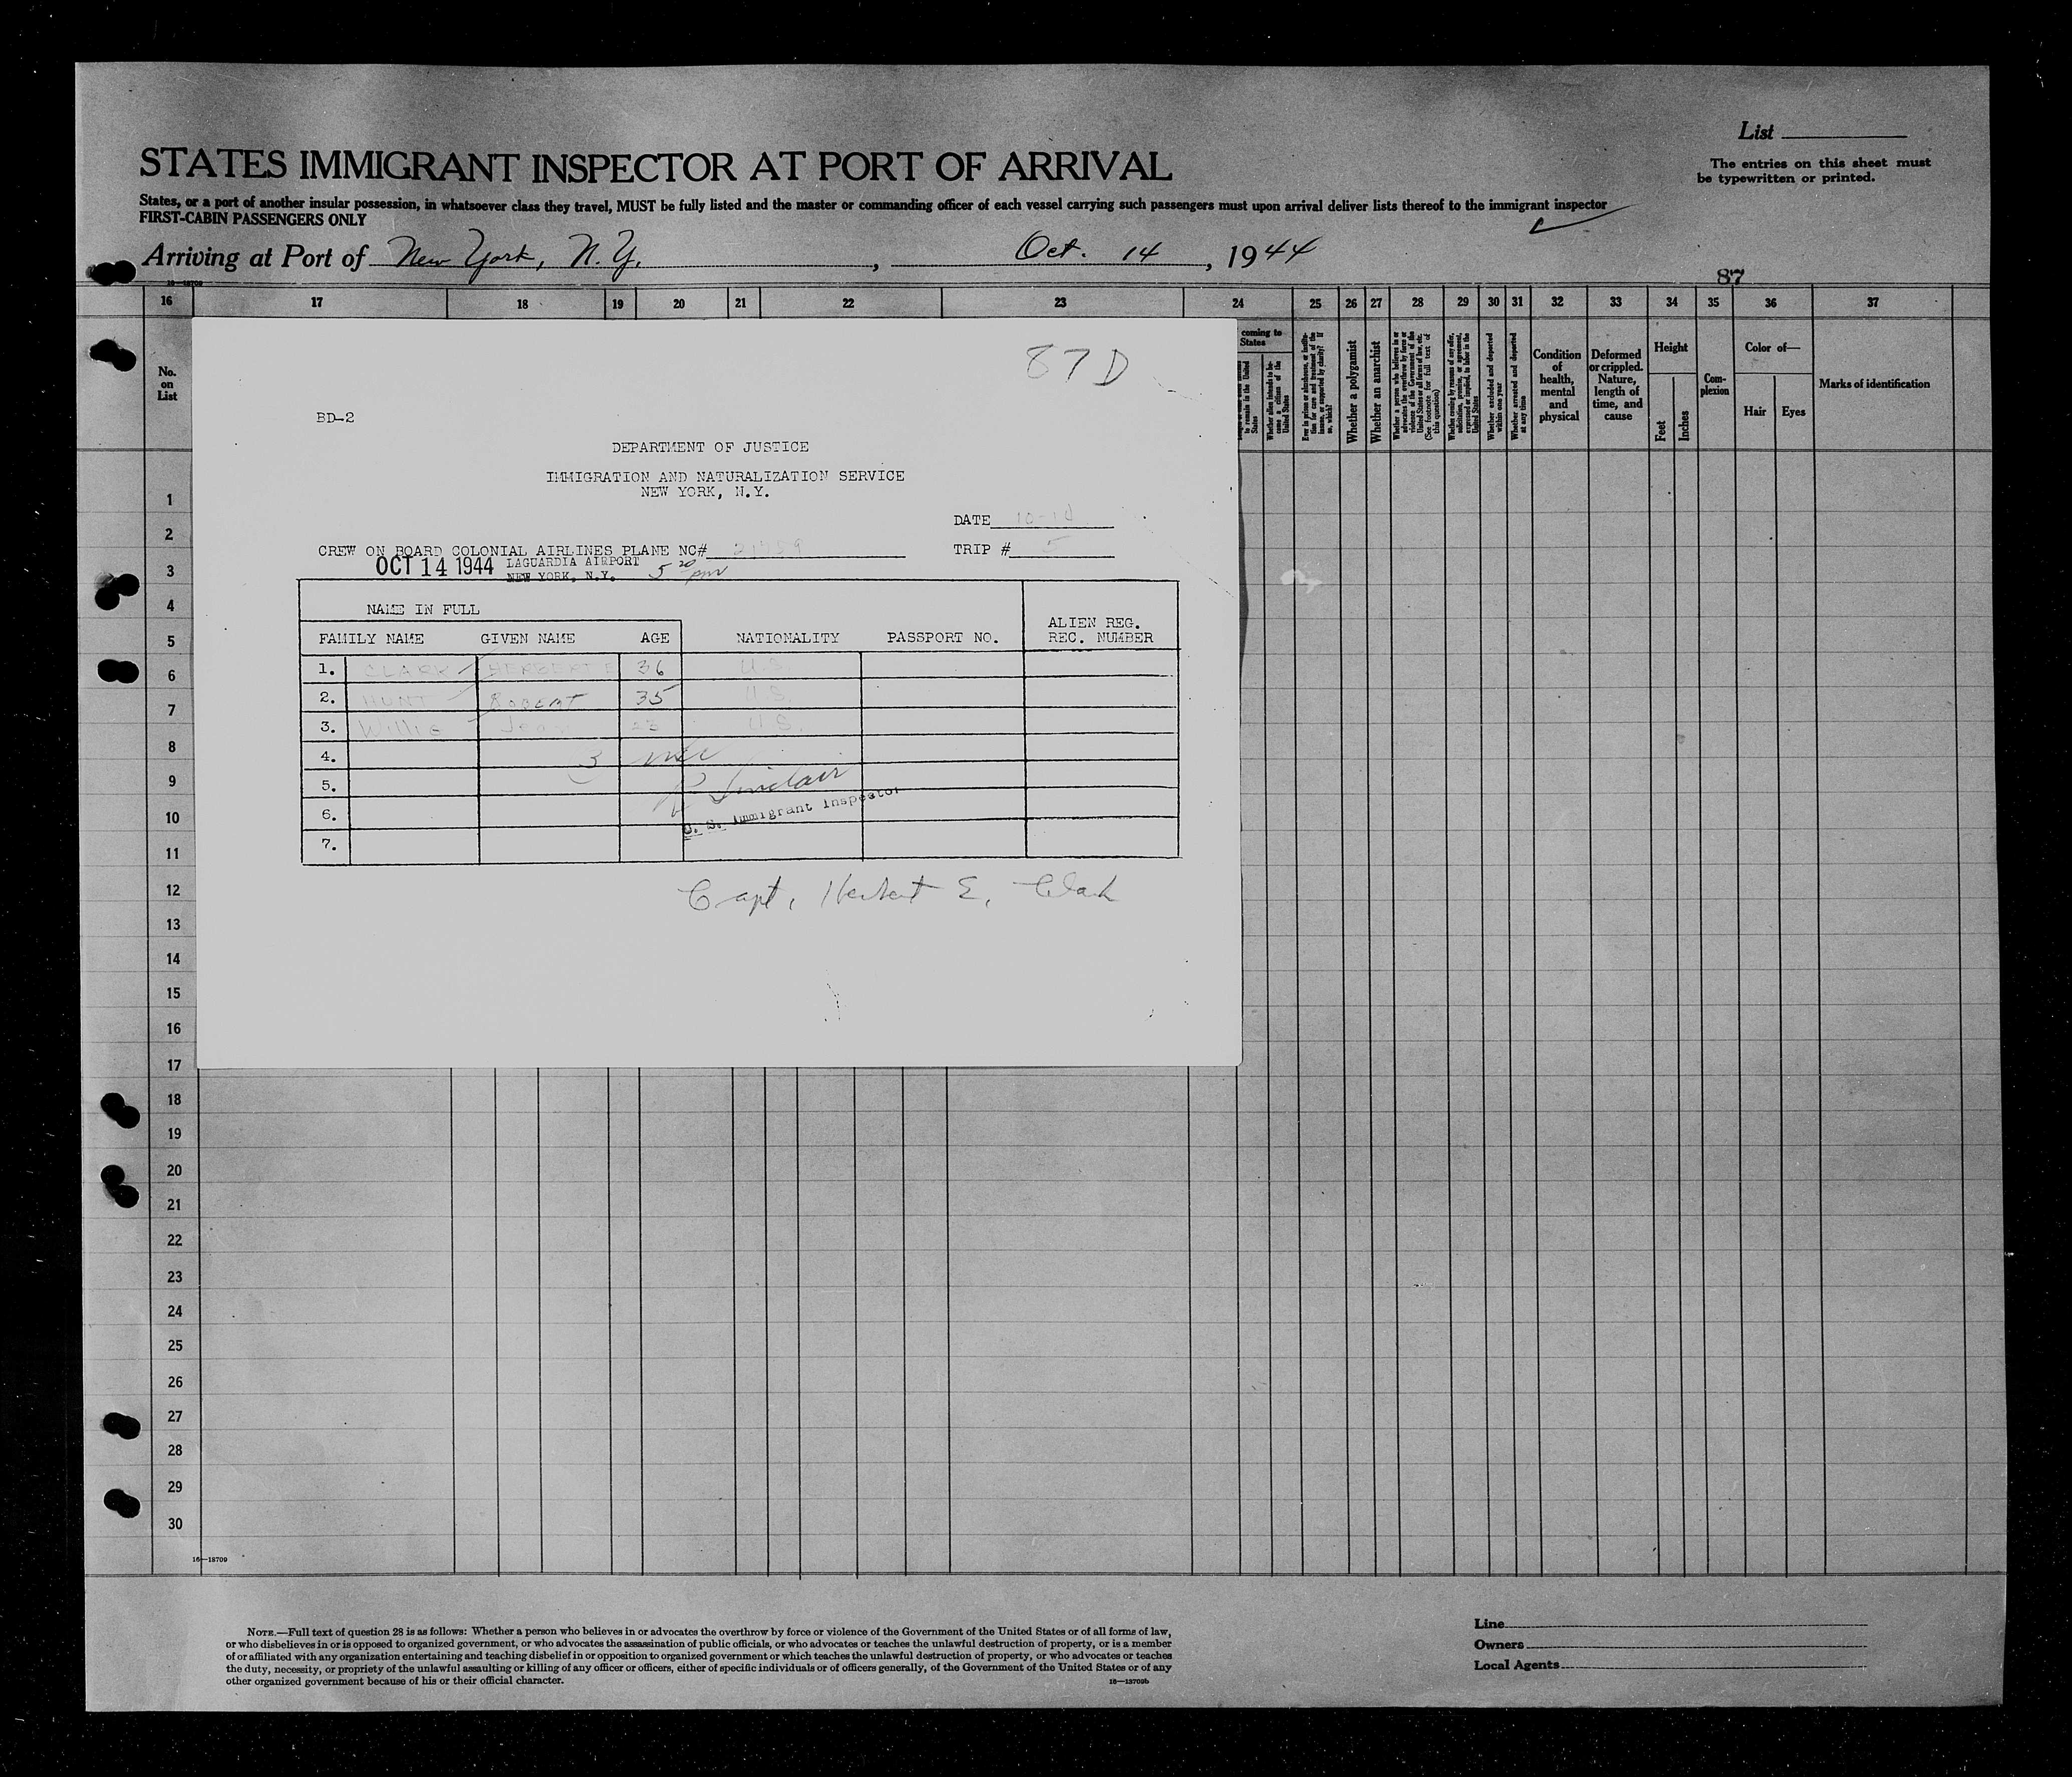 List
The entries on this sheet must
be typewritten or printed.
STATES IMMIGRANT INSPECTOR AT PORT OF ARRIVAL
States, or a port of another insular possession, in whatsoever class they travel, MUST be fully listed and the master or commanding officer of each vessel carrying such passengers must upon arrival deliver lists thereof to the immigrant inspector
FIRST-CABIN PASSENGERS ONLY
Arriving at Port of New York, N.Y. , Oct. 14 , 1944
87
16—18709
16 17 18 19 20 21 22 23 24 25 26 27 28 29 30 31 32 33 34 35 36 37
No. on List
coming to States
Whether alien intends to become a citizen of the United States
Whether a polygamist
Whether an anarchist
(See footnote for full text of this question)
Whether excluded and deported within one year
Whether arrested and deported at any time
Condition of health, mental and physical
Deformed or crippled. Nature, length of time, and cause
Height
Feet
Inches
Complexion
Color of—
Hair
Eyes
Marks of identification
87 D
BD-2
DEPARTMENT OF JUSTICE
IMMIGRATION AND NATURALIZATION SERVICE
NEW YORK, N.Y.
DATE 10-14
CREW ON BOARD COLONIAL AIRLINES PLANE NC#
TRIP # 5
OCT 14 1944 LAGUARDIA AIRPORT
NEW YORK, N.Y. 5 20 pm
NAME IN FULL
FAMILY NAME GIVEN NAME AGE NATIONALITY PASSPORT NO. ALIEN REG. REC. NUMBER
1. CLARK HERBERT E 36 U.S.
2. HUNT ROBERT 35 U.S.
3. Willis Jean 23 U.S.
4. 3
5. Sinclair
6. U. S. Immigrant Inspector
7.
Capt. Herbert E. Clark
1
2
3
4
5
6
7
8
9
10
11
12
13
14
15
16
17
18
19
20
21
22
23
24
25
26
27
28
29
30
16—18709
NOTE.—Full text of question 28 is as follows: Whether a person who believes in or advocates the overthrow by force or violence of the Government of the United States or of all forms of law,
or who disbelieves in or is opposed to organized government, or who advocates the assassination of public officials, or who advocates or teaches the unlawful destruction of property, or is a member
of or affiliated with any organization entertaining and teaching disbelief in or opposition to organized government or which teaches the unlawful destruction of property, or who advocates or teaches
the duty, necessity, or propriety of the unlawful assaulting or killing of any officer or officers, either of specific individuals or of officers generally, of the Government of the United States or of any
other organized government because of his or their official character.
16—18709b
Line
Owners
Local Agents